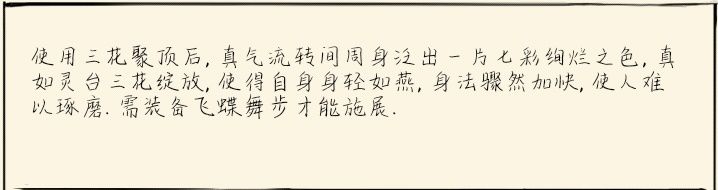 使用三花聚顶后, 真气流转间周身泛出一片七彩绚烂之色, 真
如灵台三花绽放, 使得自身身轻如燕, 身法骤然加快, 使人难
以琢磨. 需装备飞蝶舞步才能施展.